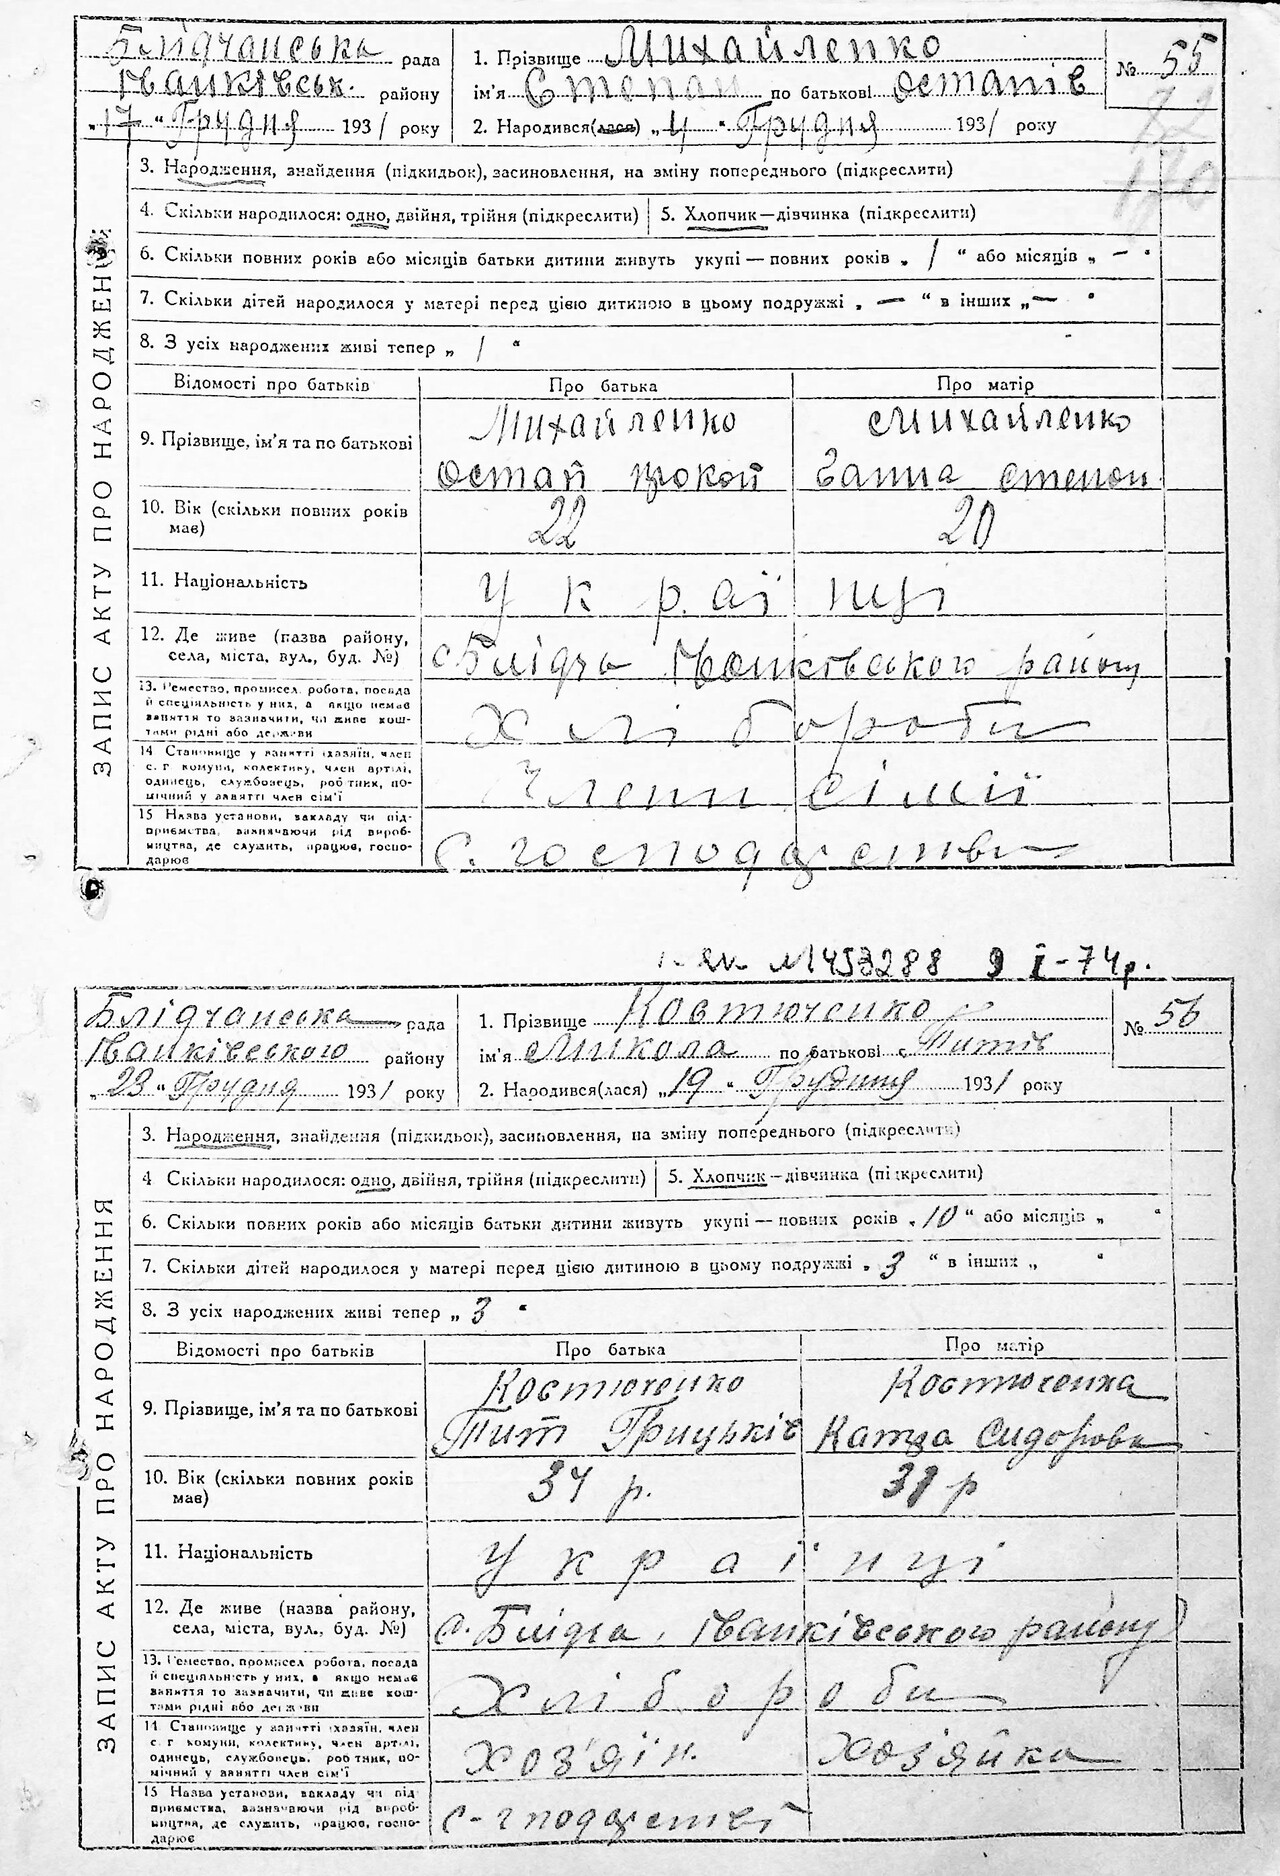 Блідчанська рада
Іванківськ. району
„17“ Грудня 1931 року
1. Прізвище Михайленко
ім'я Степан по батькові Остапів
2. Народився(лася) „4“ Грудня 1931 року
№ 55
170
ЗАПИС АКТУ ПРО НАРОДЖЕННЯ
3. Народження, знайдення (підкидьок), засиновлення, на зміну попереднього (підкреслити)
4. Скільки народилося: одно, двійня, трійня (підкреслити) 5. Хлопчик—дівчинка (підкреслити)
6. Скільки повних років або місяців батьки дитини живуть укупі — повних років „ 1 “ або місяців „ — “
7. Скільки дітей народилося у матері перед цією дитиною в цьому подружжі „ — “ в інших „ — “
8. З усіх народжених живі тепер „ 1 “
Відомості про батьків Про батька Про матір
9. Прізвище, ім'я та по батькові
Михайленко Михайленко
Остап Прокоп Ганна Степан
10. Вік (скільки повних років має) 22 20
11. Національність Українці
12. Де живе (назва району, села, міста, вул., буд. №) с Блідча Іванківського району
13. Ремество, промисел, робота, посада й спеціяльність у них, а якщо немає заняття то зазначити, чи живе кош-
тами рідні або держави
Хлібороби
14 Становище у занятті (хазяїн, член с. г комуни, колективу, член артілі, одинець, службовець, робітник, по-
мічний у занятті член сім'ї
Члени сімії
15 Назва установи, закладу чи під-
приємства, визначаючи рід вироб-
ництва, де служить, працює, госпо-
дарює
С. господарстві
М 453288 9 I-74р.
Блідчанська рада
Іванківського району
„23“ Грудня 1931 року
1. Прізвище Костюченко
ім'я Микола по батькові Титів
2. Народився(лася) „19“ Грудня 1931 року
№ 56
ЗАПИС АКТУ ПРО НАРОДЖЕННЯ
3. Народження, знайдення (підкидьок), засиновлення, на зміну попереднього (підкреслити)
4 Скільки народилося: одно, двійня, трійня (підкреслити) 5. Хлопчик—дівчинка (підкреслити)
6. Скільки повних років або місяців батьки дитини живуть укупі — повних років „ 10 “ або місяців „ “
7. Скільки дітей народилося у матері перед цією дитиною в цьому подружжі „ 3 “ в інших „ “
8. З усіх народжених живі тепер „ 3 “
Відомості про батьків Про батька Про матір
9. Прізвище, ім'я та по батькові
Костюченко Костюченка
Тит Грицьків Катя Сидорова
10. Вік (скільки повних років має) 34 р. р
11. Національність Українці
12. Де живе (назва району, села, міста, вул., буд. №) с. Блідча, Іванківського району
13. Ремество, промисел робота, посада й спеціяльність у них, а якщо немає заняття то зазначити, чи живе кош-
тами рідні або держави
Хлібороби
14 Становище у занятті (хазяїн, член с. г комуни, колективу, член артілі, одинець, службовець, робітник, по-
мічний у занятті член сім'ї
Хоз'яїн. Хоз'яйка
15 Назва установи, закладу чи під-
приємства, визначаючи рід вироб-
ництва, де служить, працює, госпо-
дарює